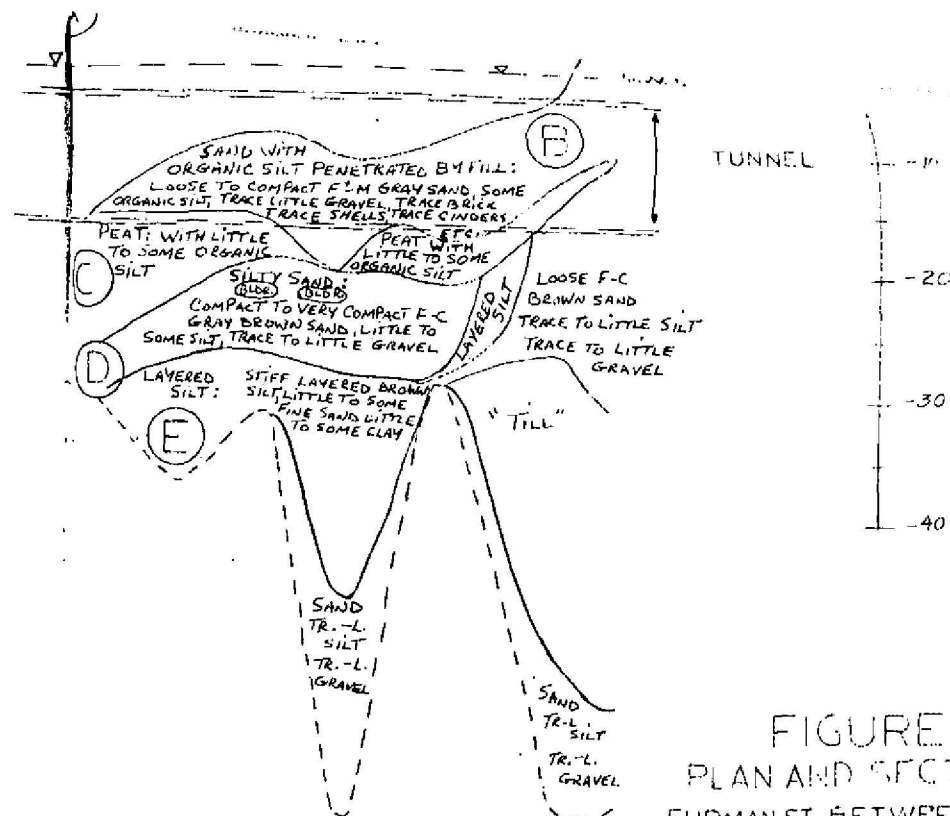 B
TUNNEL
-10
SAND WITH
ORGANIC SILT PENETRATED BY FILL:
LOOSE TO COMPACT F-M GRAY SAND, SOME
ORGANIC SILT, TRACE LITTLE GRAVEL, TRACE BRICK
TRACE SHELLS, TRACE CINDERS,
ETC.
PEAT: WITH LITTLE
TO SOME ORGANIC
SILT
PEAT WITH
LITTLE TO SOME
ORGANIC SILT
C
-20
SILTY SAND:
BLDR. BLDR.
COMPACT TO VERY COMPACT F-C
GRAY BROWN SAND, LITTLE TO
SOME SILT, TRACE TO LITTLE GRAVEL
LAYERED
SILT
LOOSE F-C
BROWN SAND
TRACE TO LITTLE SILT
TRACE TO LITTLE
GRAVEL
D
LAYERED
SILT:
STIFF LAYERED BROWN
SILT, LITTLE TO SOME
FINE SAND LITTLE
TO SOME CLAY
"TILL"
-30
E
-40
SAND
TR.-L.
SILT
TR.-L.
GRAVEL
SAND
TR-L
SILT
TR.-L.
GRAVEL
FIGURE
PLAN AND SECT
FURMAN ST. BETWEE